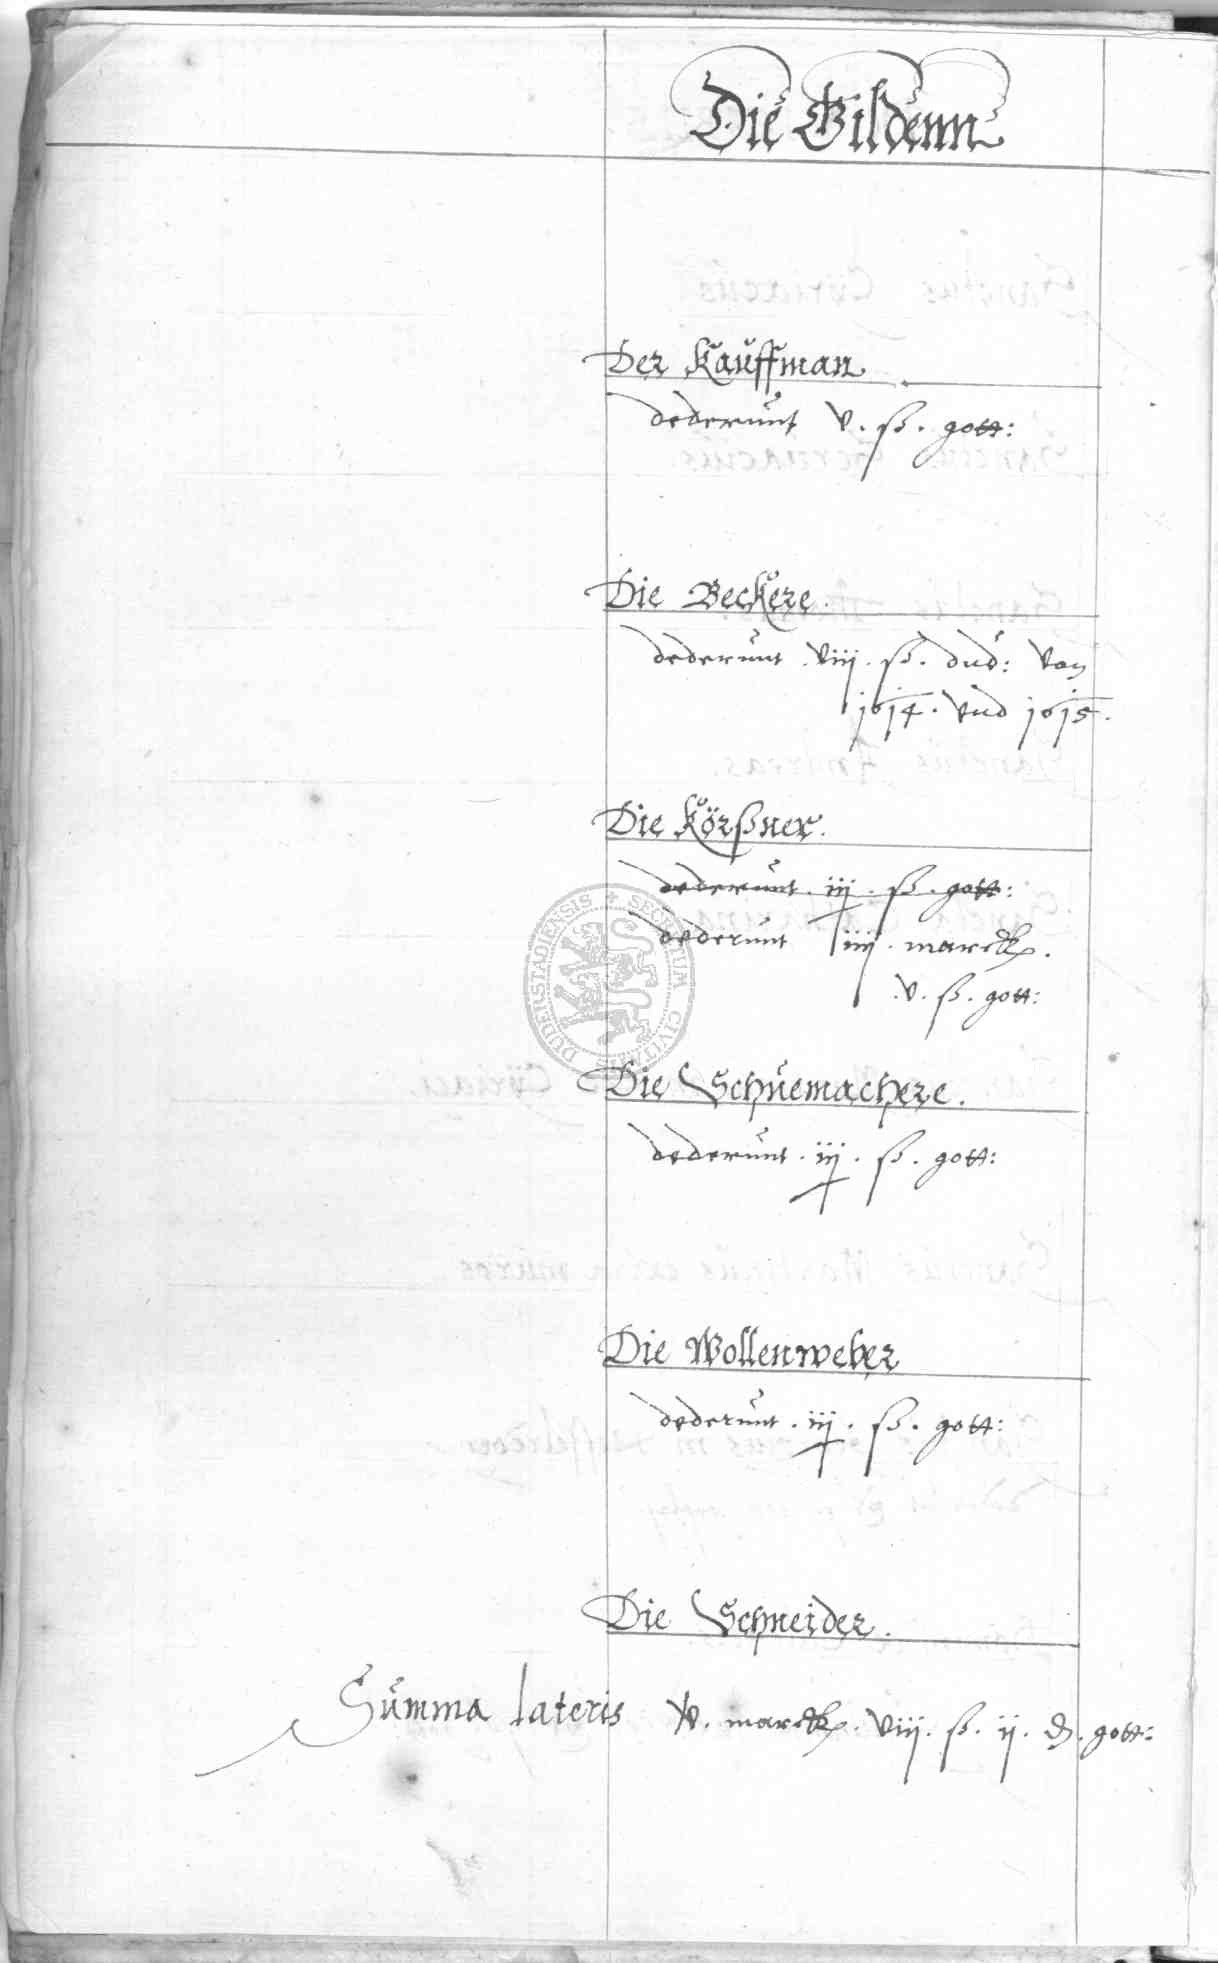 Die Gildenn
Der Kauffman
dederunt v. ß. gott:
Die Beckere.
dederunt. viij. ß. dud: von
1614. vnd 1615.
Die Körßner.
dederunt. iij. ß. gott:
dederunt iiij. marck.
v. ß. gott:
Die Schuemachere.
dederunt. iij. ß. gott:
Die Wollenweber
dederunt. iij. ß. gott:
Die Schneider.
Summa lateris v. marck. viij. ß. ij. d. gott:
SECRETUM CIVITATIS DUDERSTADIENSIS